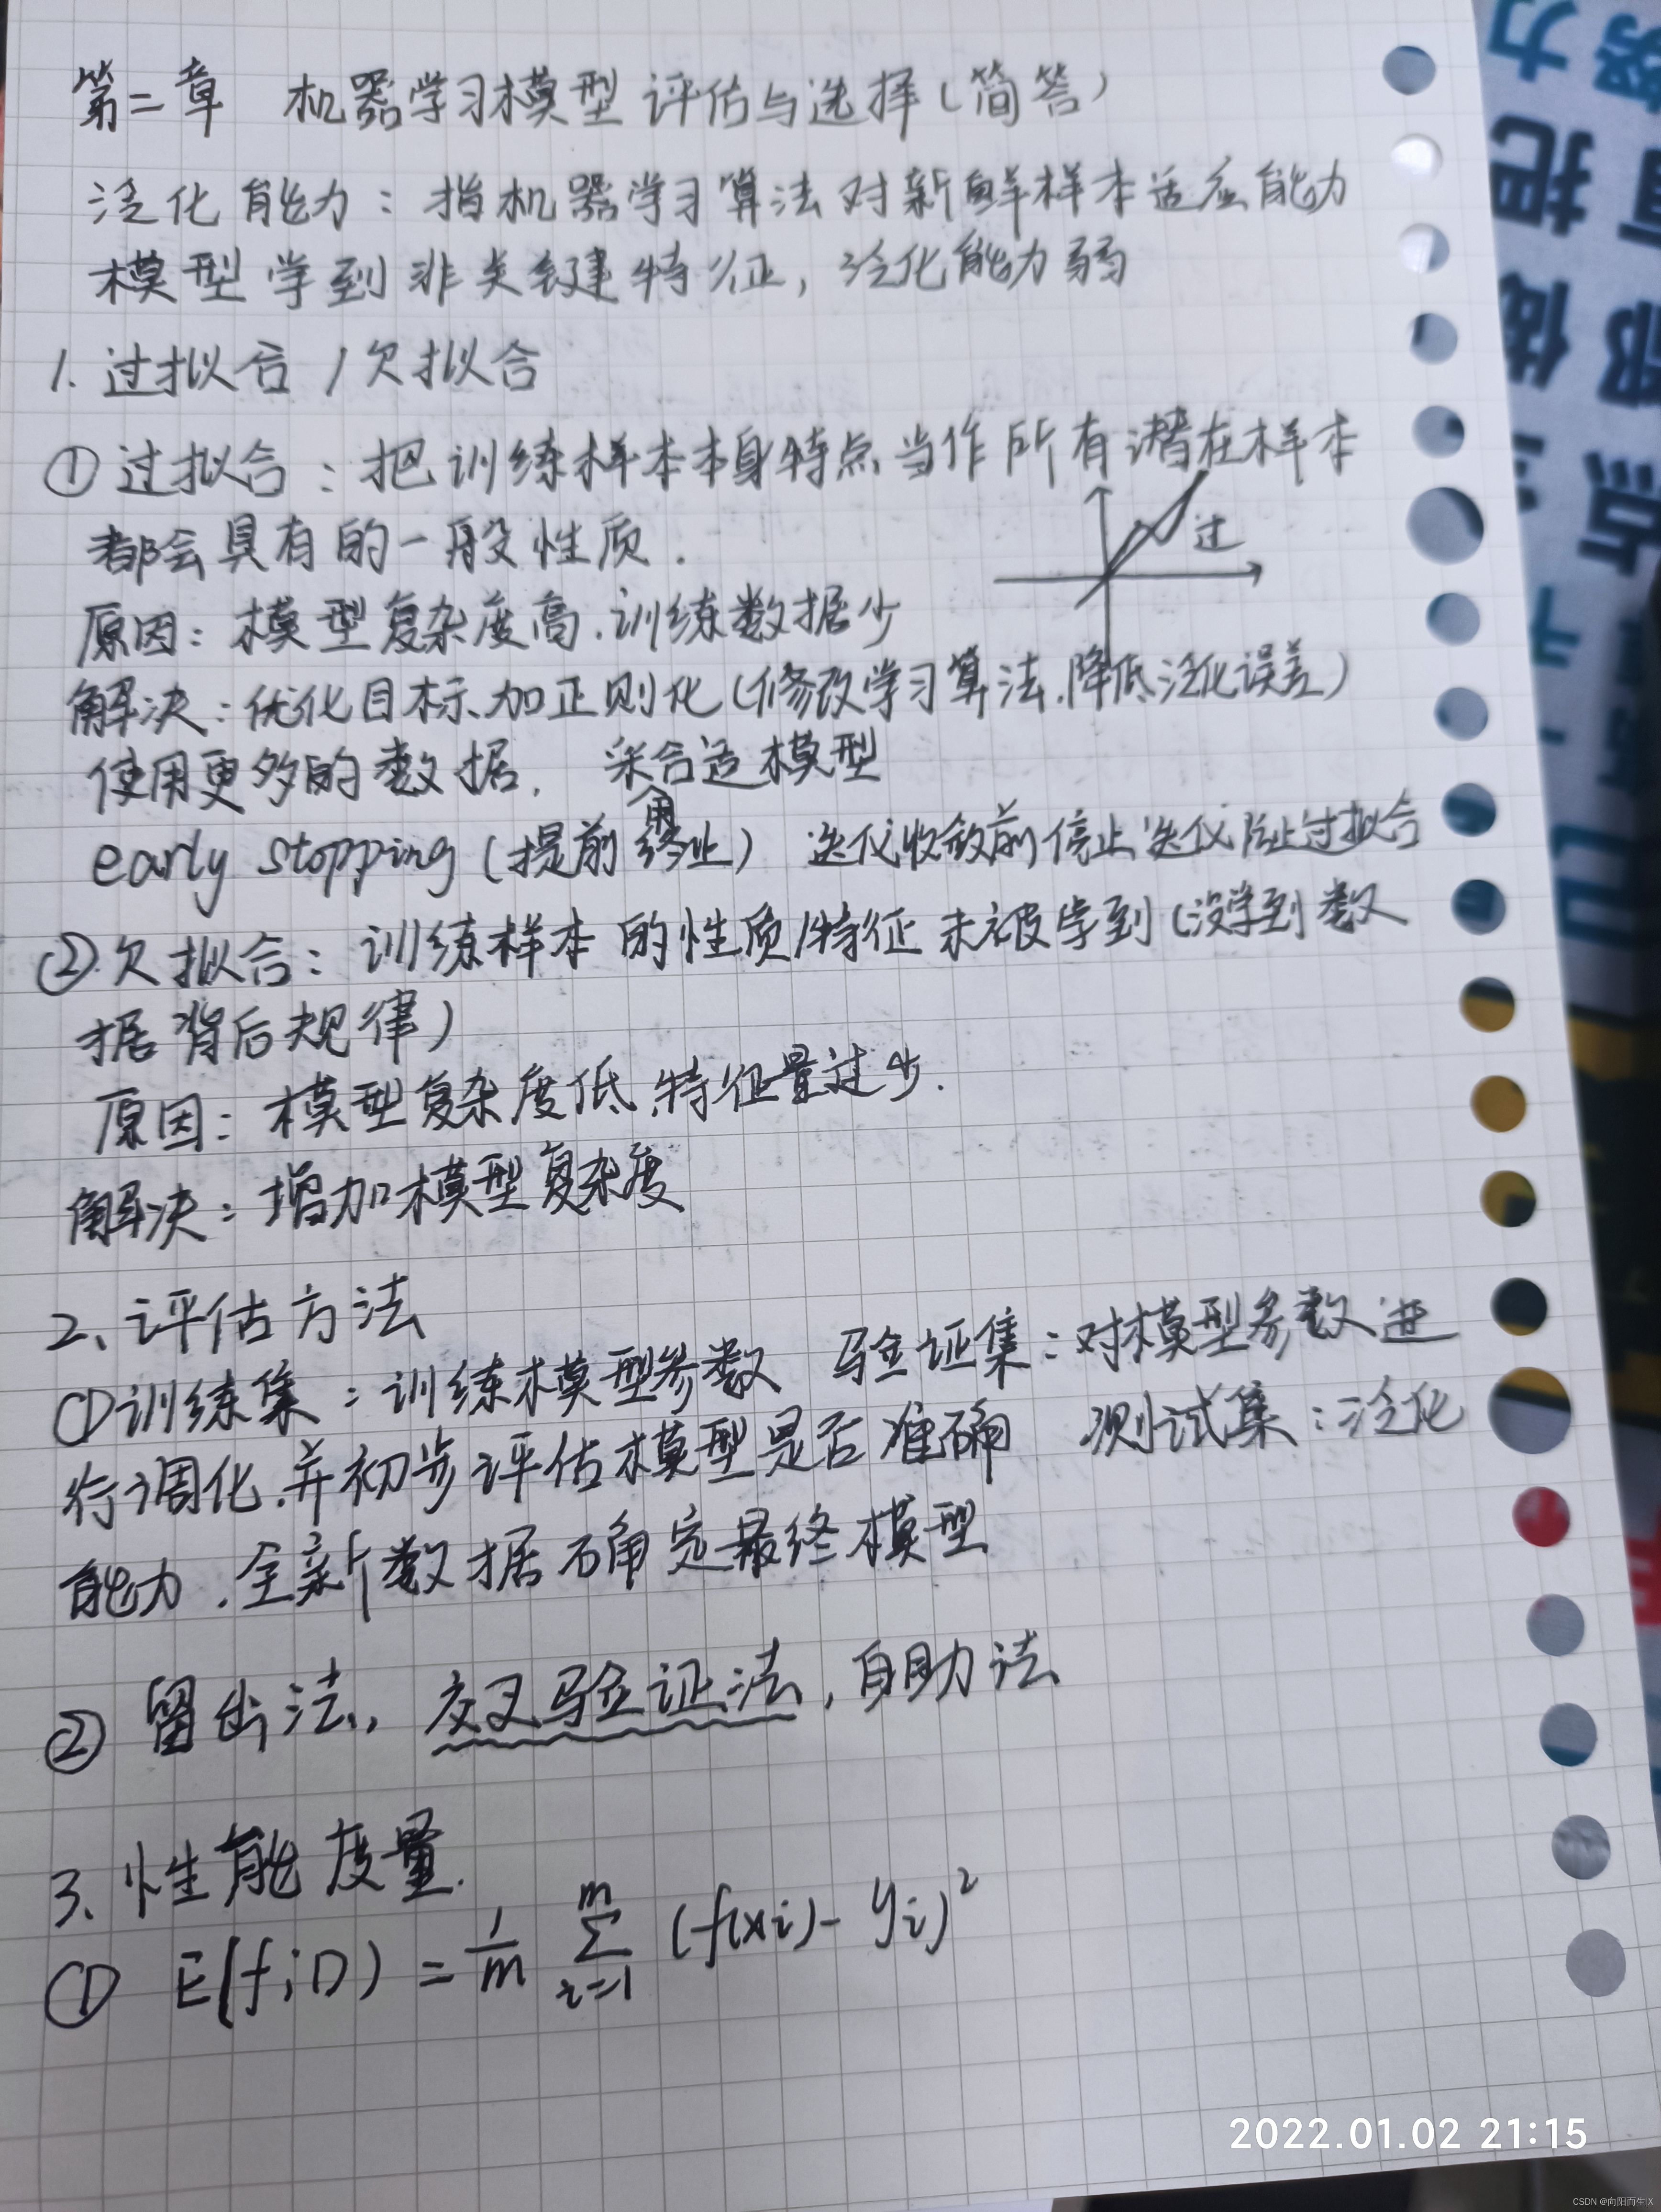 第二章 机器学习模型评估与选择(简答)
泛化能力：指机器学习算法对新鲜样本适应能力
模型学到非关键特征，泛化能力弱
1. 过拟合/欠拟合
①过拟合：把训练样本本身特点当作所有潜在样本
都会具有的一般性质.
过
原因：模型复杂度高.训练数据少
解决：优化目标加正则化(修改学习算法.降低泛化误差)
使用更多的数据. 采用合适模型
early stopping (提前终止) 迭代收敛前停止迭代防止过拟合
②欠拟合：训练样本的性质/特征未被学到(没学到数
据背后规律)
原因：模型复杂度低.特征量过少.
解决：增加模型复杂度
2、评估方法
①训练集：训练模型参数 验证集：对模型参数进
行调化.并初步评估模型是否准确 测试集：泛化
能力.全新数据确定最终模型
② 留出法, 交叉验证法, 自助法
3、性能度量.
① E(f;D) = 1/m ∑_{i=1}^{m} (f(xi) - yi)²
2022.01.02 21:15
CSDN @向阳而生|X
力 努
把